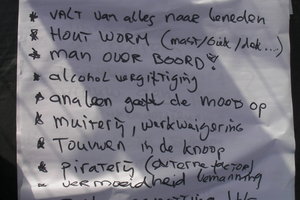 * VALT van alles naar beneden
* HOUT WORM (mast/Giek/dek....)
* man OVER BOORD!
* alcohol vergiftiging
* de MOOD op
* muiterij, werkweigering
* TOUWEN in de knoop
* piraterij (externe factor)
- vermoeidheid bemanning